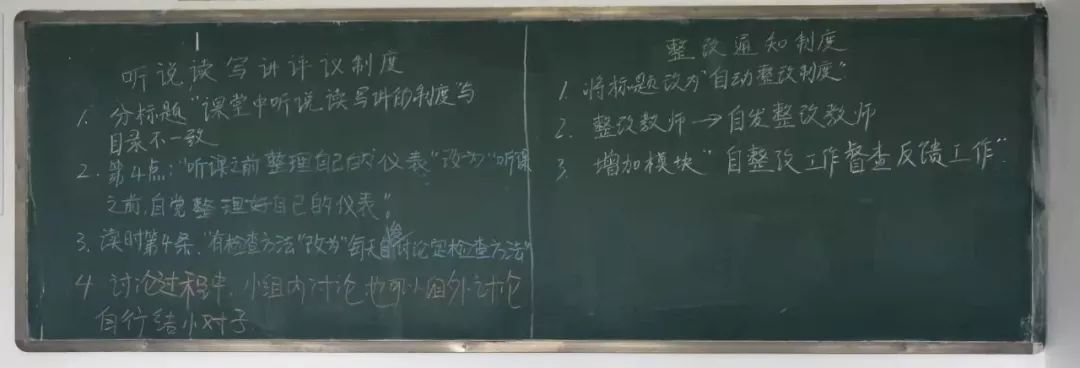 听说读写讲评议制度
1. 分标题"课堂中听说读写讲的制度"与
目录不一致
2. 第4点:"听课之前整理自己的仪表"改为"听课
之前,自觉整理好自己的仪表"。
3. 读时第4条,"有检查方法"改为"每天自讨论定检查方法"
4 讨论过程中,小组内讨论,也可小组外讨论
自行结小对子
整改通知制度
1. 将标题改为"自动整改制度"
2. 整改教师→自发整改教师
3. 增加模块"自整改工作督查反馈工作".